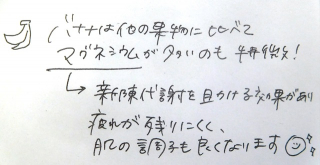 バナナは他の果物に比べて
マグネシウムが多いのも特徴!
→ 新陳代謝を助ける効果があり
疲れが残りにくく、
肌の調子も良くなります